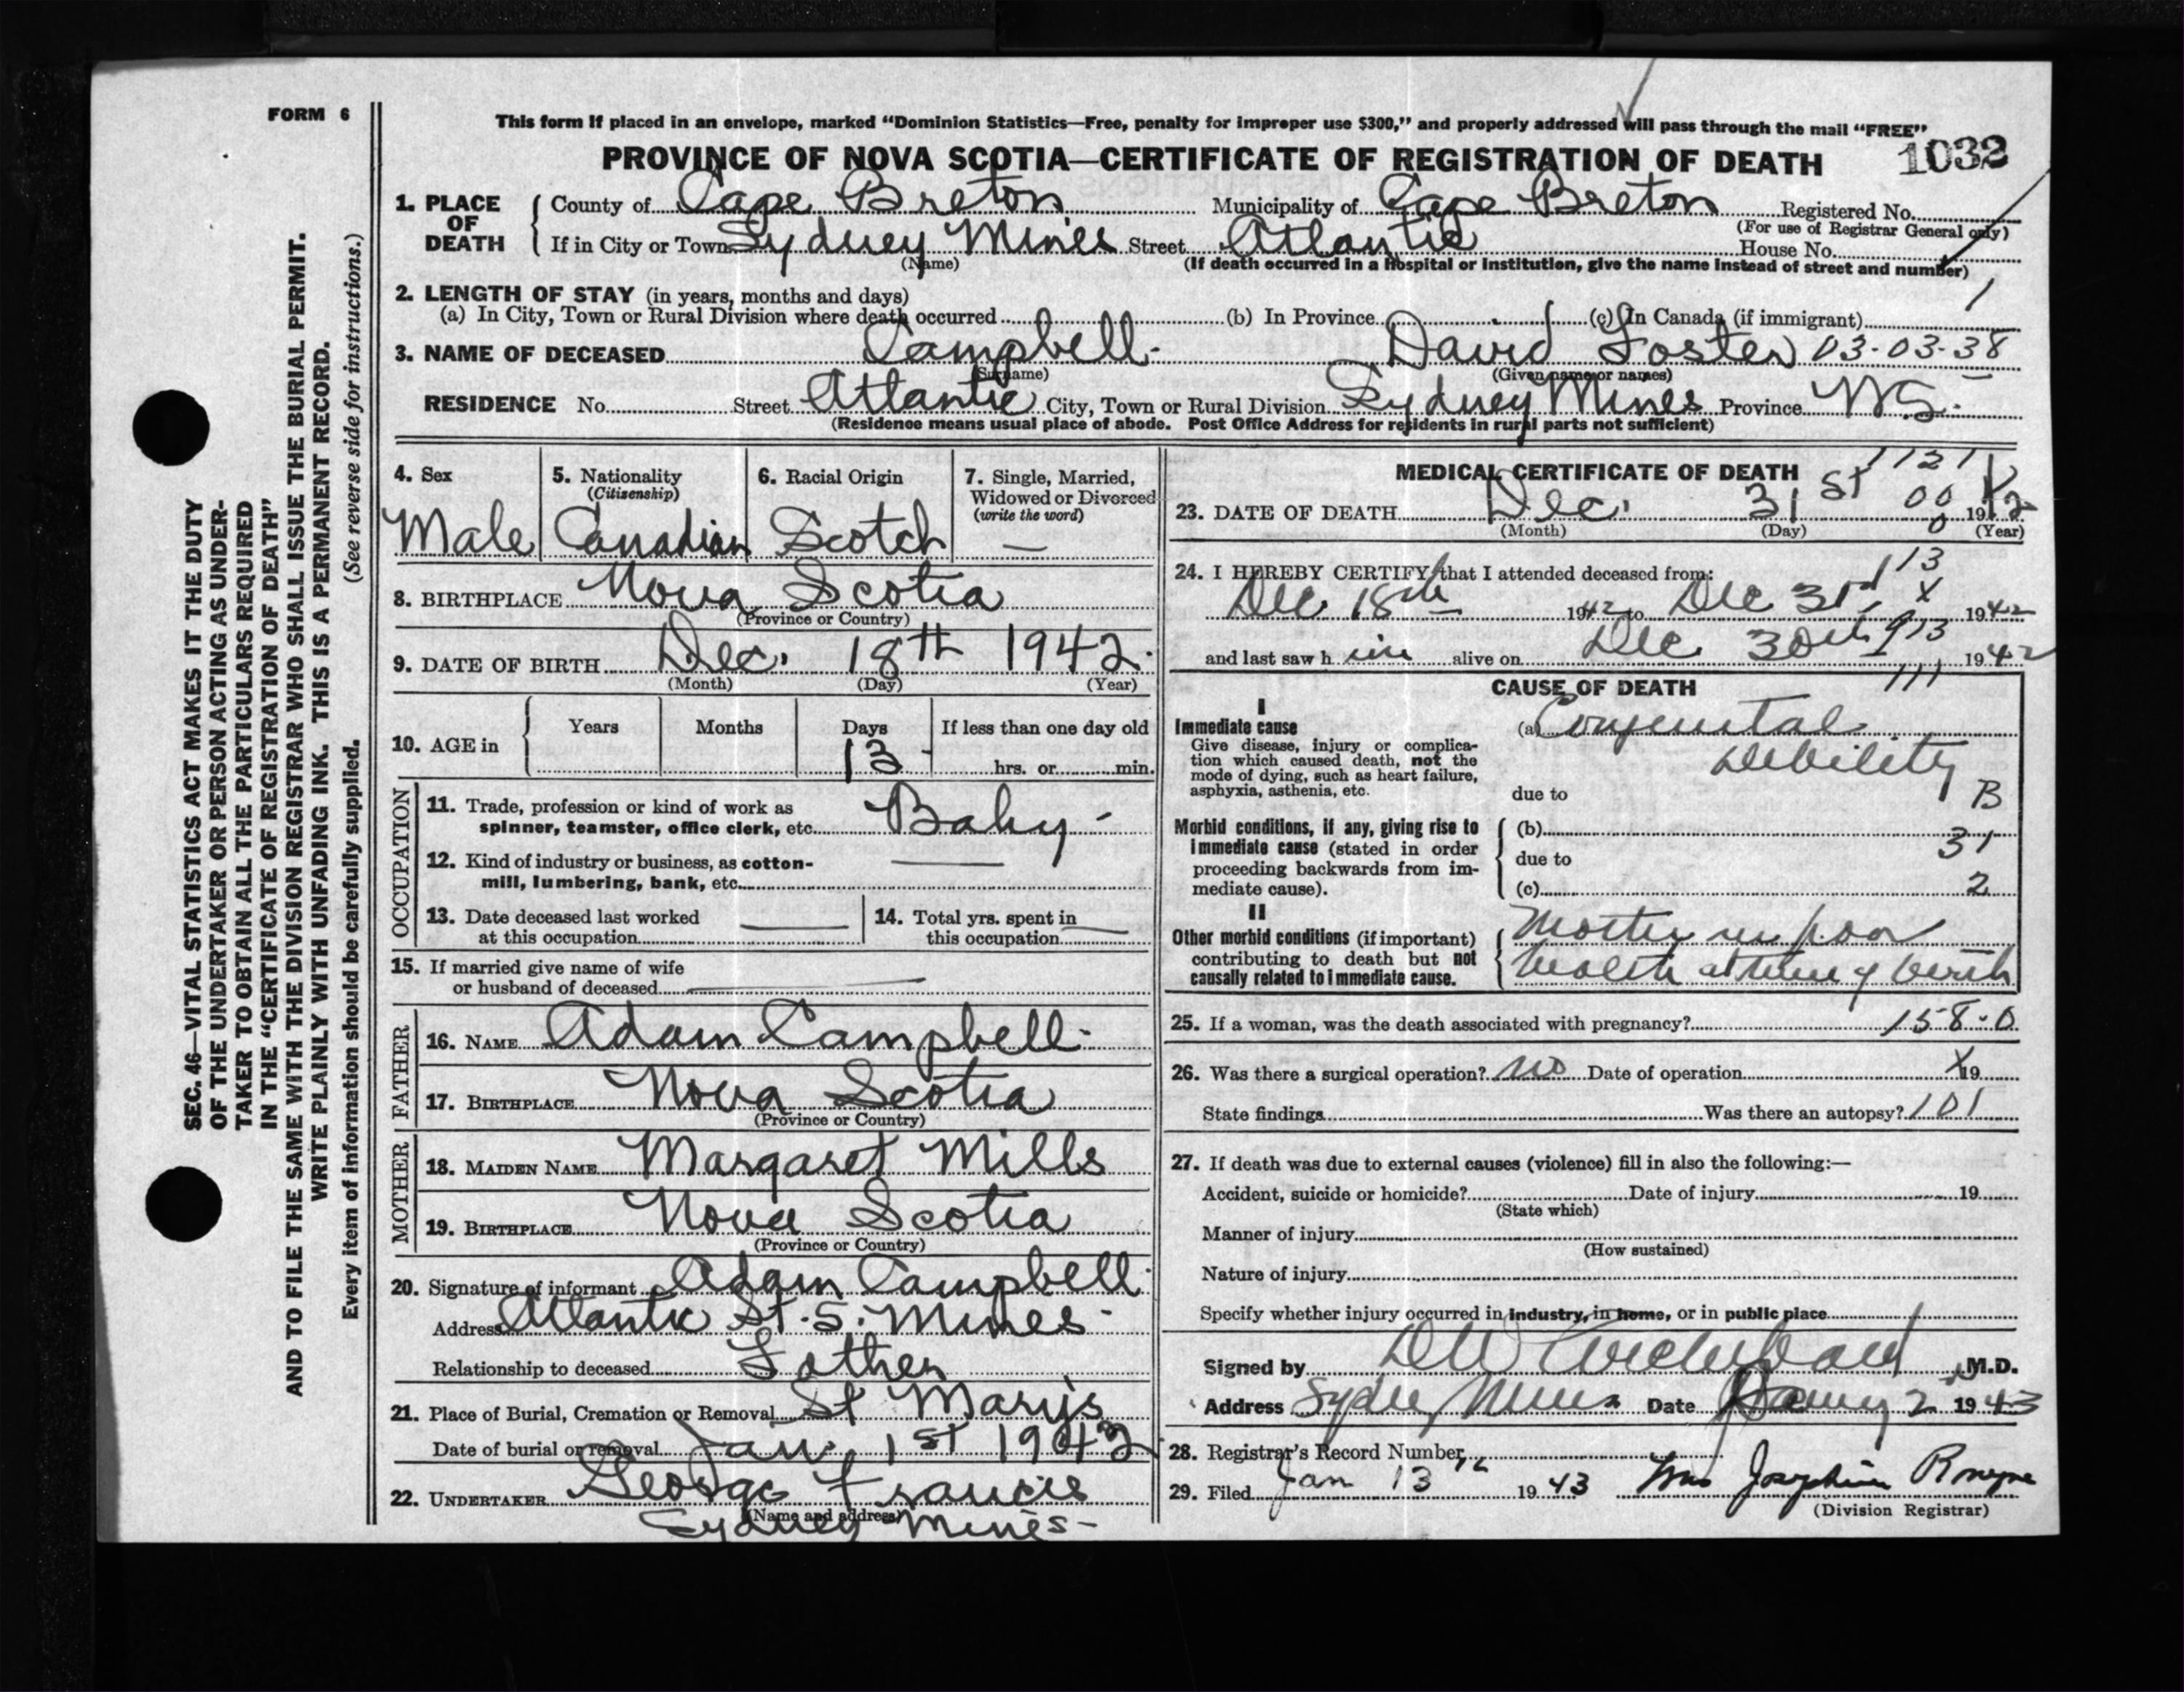 FORM 6
This form if placed in an envelope, marked "Dominion Statistics—Free, penalty for improper use $300," and properly addressed will pass through the mail "FREE"
PROVINCE OF NOVA SCOTIA—CERTIFICATE OF REGISTRATION OF DEATH 1032
1. PLACE OF DEATH County of Cape Breton Municipality of Cape Breton Registered No.
(For use of Registrar General only)
If in City or Town Sydney Mines Street Atlantic House No.
(Name) (If death occurred in a Hospital or Institution, give the name instead of street and number)
2. LENGTH OF STAY (in years, months and days) 1
(a) In City, Town or Rural Division where death occurred (b) In Province (c) In Canada (if immigrant)
3. NAME OF DECEASED Campbell David Foster 03-03-38
(Surname) (Given name or names)
RESIDENCE No. Street Atlantic City, Town or Rural Division Sydney Mines Province N.S.
(Residence means usual place of abode. Post Office Address for residents in rural parts not sufficient)
4. Sex 5. Nationality 6. Racial Origin 7. Single, Married,
(Citizenship) Widowed or Divorced
(write the word)
Male Canadian Scotch —
8. BIRTHPLACE Nova Scotia
(Province or Country)
9. DATE OF BIRTH Dec. 18th 1942.
(Month) (Day) (Year)
Years Months Days If less than one day old
10. AGE in 13 hrs. or min.
OCCUPATION
11. Trade, profession or kind of work as
spinner, teamster, office clerk, etc. Baby -
12. Kind of industry or business, as cotton-
mill, lumbering, bank, etc. —
13. Date deceased last worked —
at this occupation
14. Total yrs. spent in —
this occupation
15. If married give name of wife
or husband of deceased —
FATHER
16. NAME Adam Campbell-
17. BIRTHPLACE Nova Scotia
(Province or Country)
MOTHER
18. MAIDEN NAME Margaret Mills
19. BIRTHPLACE Nova Scotia
(Province or Country)
20. Signature of informant Adam Campbell.
Address Atlantic St. S. Mines -
Relationship to deceased Father
21. Place of Burial, Cremation or Removal St Marys
Date of burial or removal Jan. 1st 1943
22. UNDERTAKER George Francis
(Name and address)
Sydney Mines-
MEDICAL CERTIFICATE OF DEATH 1121
23. DATE OF DEATH Dec. 31st 00 1942
(Month) (Day) 0 (Year)
24. I HEREBY CERTIFY that I attended deceased from: 113
Dec 18th 1942 to Dec 31st X 1942
and last saw him alive on Dec 30th 913 1942
CAUSE OF DEATH 111
I
Immediate cause (a) Congenital
Give disease, injury or complica-
tion which caused death, not the
mode of dying, such as heart failure,
asphyxia, asthenia, etc.
Debility
due to B
Morbid conditions, if any, giving rise to
immediate cause (stated in order
proceeding backwards from im-
mediate cause).
(b) 31
due to
(c) 2
II
Other morbid conditions (if important)
contributing to death but not
causally related to immediate cause.
Mother in poor
health at time of birth
25. If a woman, was the death associated with pregnancy? 158-0
26. Was there a surgical operation? no Date of operation X 19
State findings Was there an autopsy? 101
27. If death was due to external causes (violence) fill in also the following:—
Accident, suicide or homicide? Date of injury 19
(State which)
Manner of injury
(How sustained)
Nature of injury
Specify whether injury occurred in industry, in home, or in public place
Signed by D W Archibald M.D.
Address Sydney Mines Date 2 1943
28. Registrar's Record Number
29. Filed Jan 13th 1943 Mrs Josephine
(Division Registrar)
SEC. 46—VITAL STATISTICS ACT MAKES IT THE DUTY
OF THE UNDERTAKER OR PERSON ACTING AS UNDER-
TAKER TO OBTAIN ALL THE PARTICULARS REQUIRED
IN THE "CERTIFICATE OF REGISTRATION OF DEATH"
AND TO FILE THE SAME WITH THE DIVISION REGISTRAR WHO SHALL ISSUE THE BURIAL PERMIT.
WRITE PLAINLY WITH UNFADING INK. THIS IS A PERMANENT RECORD.
Every item of information should be carefully supplied. (See reverse side for instructions.)